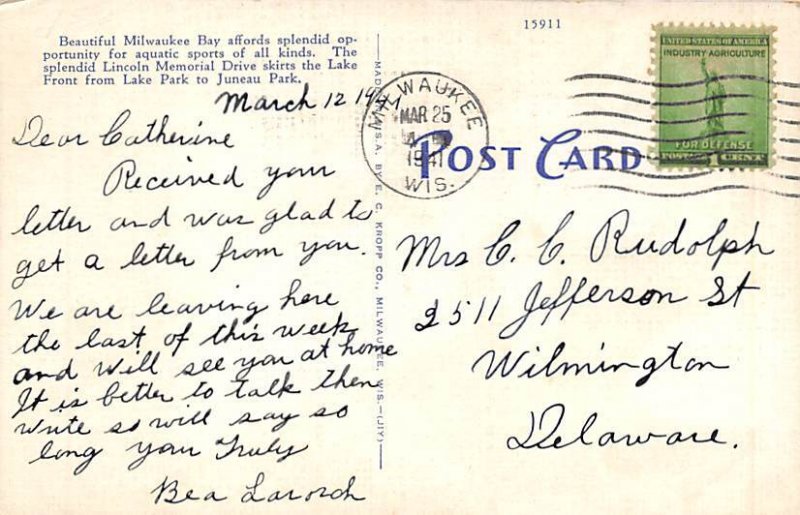 15911
Beautiful Milwaukee Bay affords splendid op-
portunity for aquatic sports of all kinds. The
splendid Lincoln Memorial Drive skirts the Lake
Front from Lake Park to Juneau Park.
March 12 1941
Dear Catherine
Received your
letter and was glad to
get a letter from you.
We are leaving here
the last of this week
and will see you at home
It is better to talk then
write so will say so
long your Truly
Bea Larosch
MADE IN U.S.A. BY E. C. KROPP CO., MILWAUKEE, WIS.—(JIY)
MILWAUKEE
MAR 25
1941
WIS.
POST CARD
UNITED STATES OF AMERICA
INDUSTRY AGRICULTURE
FOR DEFENSE
POSTAGE
Mrs C. C. Rudolph
2511 Jefferson St
Wilmington
Delaware.